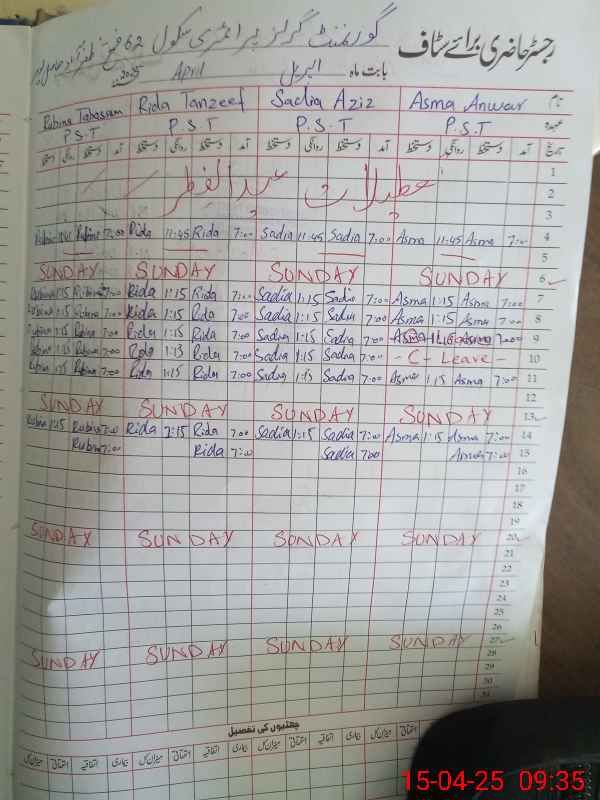 رجسٹر حاضری برائے سٹاف گورنمنٹ گرلز پرائمری سکول
بابت ماہ اپریل April 2025
نام Asma Anwar Sadia Aziz Rida Tanzeef Rubina Tabassam
عہدہ P.S.T P.S.T P.S.T P.S.T
تاریخ آمد دستخط روانگی دستخط آمد دستخط روانگی دستخط آمد دستخط روانگی دستخط آمد دستخط روانگی دستخط
1
تعطیلات عیدالفطر
2
3
Rubina 11:45 Rubina 7:00 Rida 11:45 Rida 7:00 Sadia 11:45 Sadia 7:00 Asma 11:45 Asma 7:00 4
5
SUNDAY SUNDAY SUNDAY SUNDAY 6
Rubina 1:15 Rubina 7:00 Rida 1:15 Rida 7:00 Sadia 1:15 Sadia 7:00 Asma 1:15 Asma 7:00 7
Rubina 1:15 Rubina 7:00 Rida 1:15 Rida 7:00 Sadia 1:15 Sadia 7:00 Asma 1:15 Asma 7:00 8
Rubina 1:15 Rubina 7:00 Rida 1:15 Rida 7:00 Sadia 1:15 Sadia 7:00 Asma 7:00 9
Rubina 1:15 Rubina 7:00 Rida 1:15 Rida 7:00 Sadia 1:15 Sadia 7:00 - C - Leave - 10
Rubina 1:15 Rubina 7:00 Rida 1:15 Rida 7:00 Sadia 1:15 Sadia 7:00 Asma 1:15 Asma 7:00 11
12
SUNDAY SUNDAY SUNDAY SUNDAY 13
Rubina 1:15 Rubina 7:00 Rida 1:15 Rida 7:00 Sadia 1:15 Sadia 7:00 Asma 1:15 Asma 7:00 14
Rubina 7:00 Rida 7:00 Sadia 7:00 Asma 7:00 15
16
17
18
19
SUNDAY SUNDAY SUNDAY SUNDAY 20
21
22
23
24
25
26
SUNDAY SUNDAY SUNDAY SUNDAY 27
28
29
30
31
چھٹیوں کی تفصیل
15-04-25 09:35